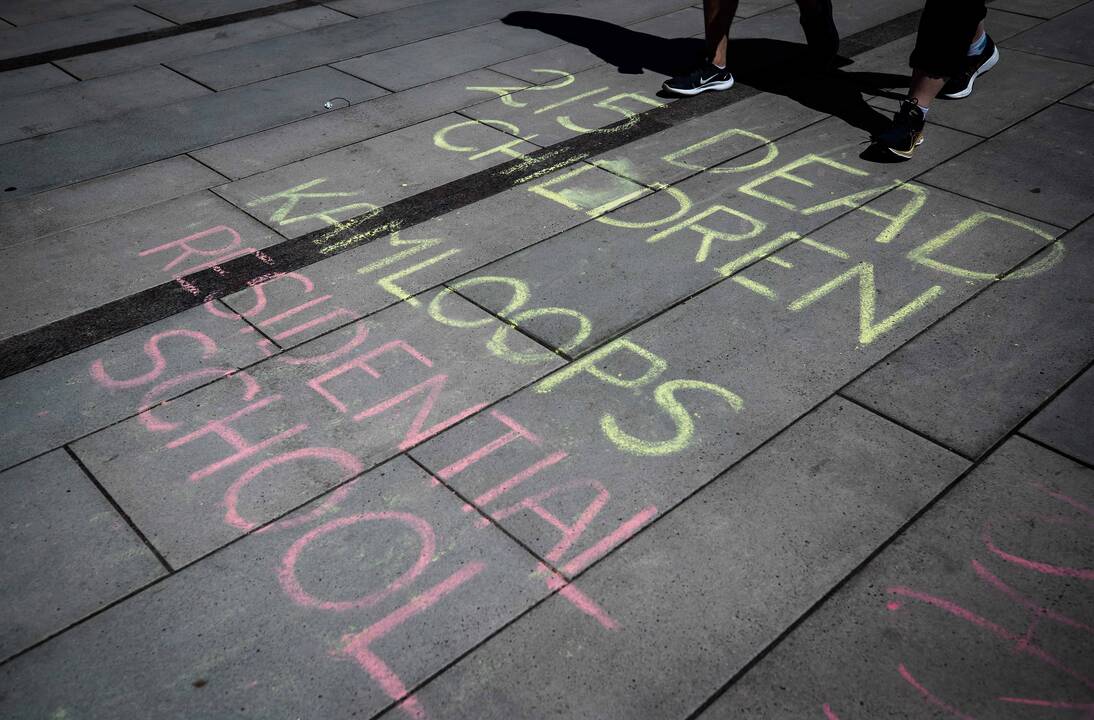 215 DEAD
CHILDREN
KAMLOOPS
RESIDENTIAL
SCHOOL